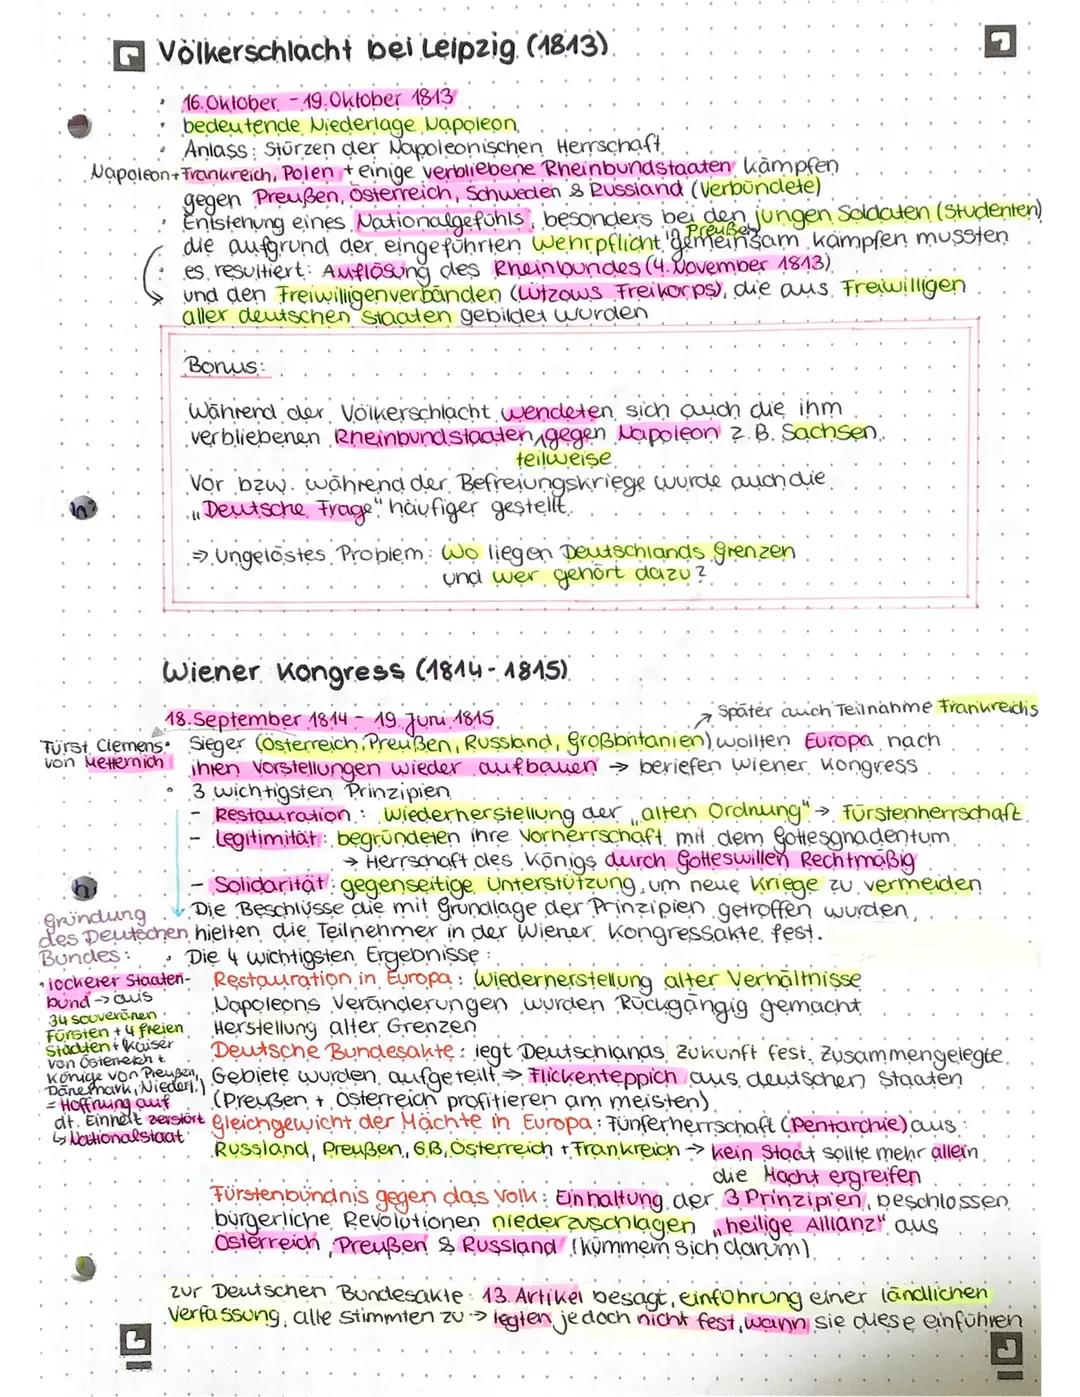 Völkerschlacht bei Leipzig (1813)
• 16. Oktober - 19. Oktober 1813
• bedeutende Niederlage Napoleon
• Anlass: Stürzen der Napoleonischen Herrschaft
Napoleon + Frankreich, Polen + einige verbliebene Rheinbundstaaten kämpfen
gegen Preußen, Österreich, Schweden & Russland (Verbündete)
• Entstehung eines Nationalgefühls, besonders bei den jungen Soldaten (Studenten)
Preußen
die aufgrund der eingeführten Wehrpflicht gemeinsam kämpfen mussten
• es resultiert: Auflösung des Rheinbundes (4. November 1813)
und den Freiwilligenverbänden (Lützows Freikorps), die aus Freiwilligen
aller deutschen Staaten gebildet wurden
Bonus:
Während der Völkerschlacht wendeten sich auch die ihm
verbliebenen Rheinbundstaaten gegen Napoleon z.B. Sachsen
teilweise
Vor bzw. während der Befreiungskriege wurde auch die
„Deutsche Frage" häufiger gestellt.
⇒ Ungelöstes Problem: Wo liegen Deutschlands Grenzen
und wer gehört dazu?
Wiener Kongress (1814-1815)
18. September 1814 - 19. Juni 1815
↗ Später auch Teilnahme Frankreichs
Fürst Clemens
von Metternich
• Sieger (Österreich, Preußen, Russland, Großbritanien) wollten Europa nach
ihren Vorstellungen wieder aufbauen → beriefen Wiener Kongress
• 3 wichtigsten Prinzipien
- Restauration: Wiederherstellung der „alten Ordnung" → Fürstenherrschaft
- Legitimität: begründeten ihre Vorherrschaft mit dem Gottesgnadentum
→ Herrschaft des Königs durch Gotteswillen Rechtmäßig
- Solidarität: gegenseitige Unterstützung, um neue Kriege zu vermeiden
Die Beschlüsse die mit Grundlage der Prinzipien getroffen wurden,
hielten die Teilnehmer in der Wiener Kongressakte fest.
• Die 4 wichtigsten Ergebnisse:
Gründung
des Deutschen
Bundes:
• lockerer Staaten-
bund → aus
34 souveränen
Fürsten + 4 freien
Städten + Kaiser
von Österreich +
Könige von Preußen,
Dänemark, Niederl.)
= Hoffnung auf
dt. Einheit zerstört
↳ Nationalstaat
Restauration in Europa: Wiederherstellung alter Verhältnisse
Napoleons Veränderungen wurden Rückgängig gemacht
Herstellung alter Grenzen
Deutsche Bundesakte: legt Deutschlands Zukunft fest. Zusammengelegte
Gebiete wurden aufgeteilt ⇒ Flickenteppich aus deutschen Staaten
(Preußen + Österreich profitieren am meisten)
Gleichgewicht der Mächte in Europa: Fünferherrschaft (Pentarchie) aus:
Russland, Preußen, GB, Österreich + Frankreich → kein Staat sollte mehr allein
die Macht ergreifen
Fürstenbündnis gegen das Volk: Einhaltung der 3 Prinzipien, beschlossen
bürgerliche Revolutionen niederzuschlagen „heilige Allianz" aus
Österreich, Preußen & Russland (kümmern sich darum)
zur Deutschen Bundesakte: 13. Artikel besagt, einführung einer ländlichen
Verfassung, alle stimmten zu → legten jedoch nicht fest, wann sie diese einführen